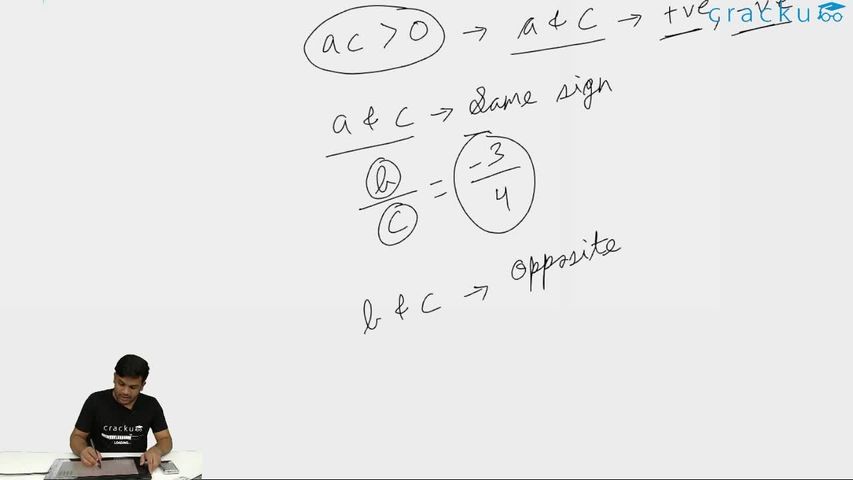 ac > 0 → a & c → +ve, -ve
cracku
a & c → Same sign
b/c = -3/4
b & c → opposite
cracku
LOADING...